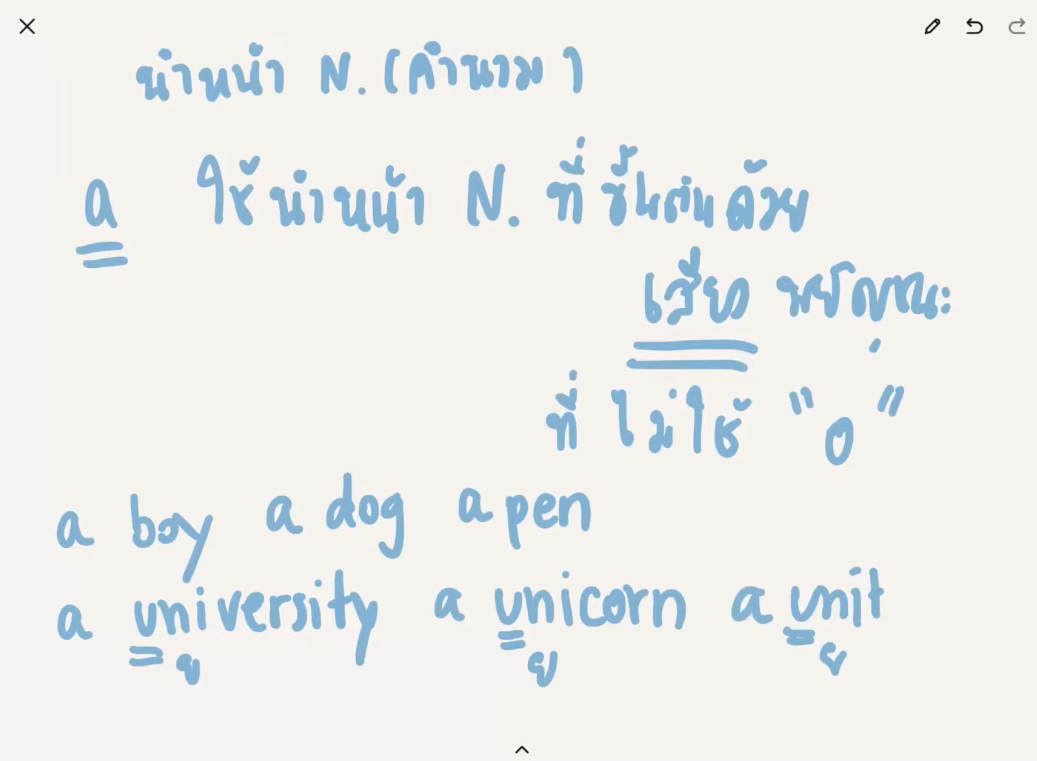 นำหน้า N. (คำนาม)
a ใช้นำหน้า N. ที่ขึ้นต้นด้วย
เสียง พยัญชนะ
ที่ ไม่ใช่ "อ"
a boy a dog a pen
a university a unicorn a unit
ย ย ย